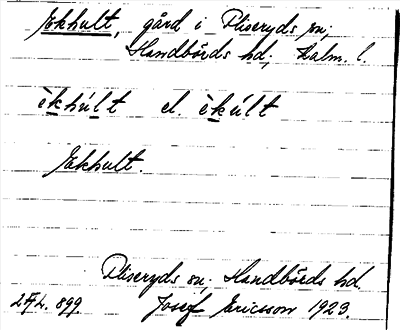 Ekhult, gård i Pliseryds sn;
Handbörds hd; Kalm. l.
èkhúlt el. èkúlt
Ekhult.
Pliseryds sn; Handbörds hd.
Josef Ericsson 1923.